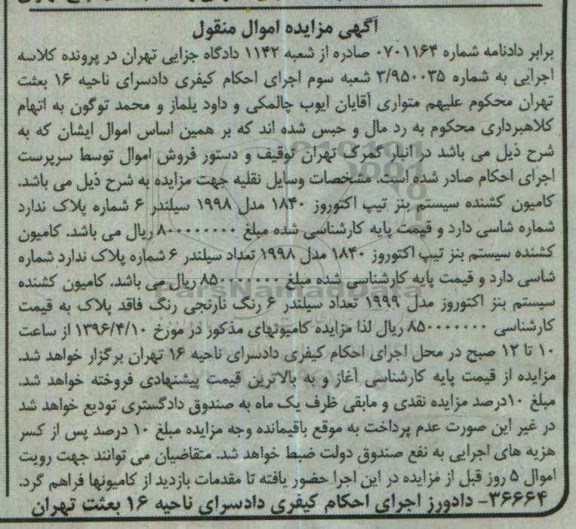 آگهی مزایده اموال منقول
برابر دادنامه شماره ۰۷۰۱۱۶۴ صادره از شعبه ۱۱۴۲ دادگاه جزایی تهران در پرونده کلاسه
اجرایی به شماره ۳/۹۵۰۰۳۵ شعبه سوم اجرای احکام کیفری دادسرای ناحیه ۱۶ بعثت
تهران محکوم علیهم متواری آقایان ایوب چالمکی و داود یلماز و محمد توگون به اتهام
کلاهبرداری محکوم به رد مال و حبس شده اند که بر همین اساس اموال ایشان که به
شرح ذیل می باشد در انبار گمرک تهران توقیف و دستور فروش اموال توسط سرپرست
اجرای احکام صادر شده است. مشخصات وسایل نقلیه جهت مزایده به شرح ذیل می باشد.
کامیون کشنده سیستم بنز تیپ اکتوروز ۱۸۴۰ مدل ۱۹۹۸ سیلندر ۶ شماره پلاک ندارد
شماره شاسی دارد و قیمت پایه کارشناسی شده مبلغ ۸۰۰۰۰۰۰۰۰ ریال می باشد. کامیون
کشنده سیستم بنز تیپ اکتوروز ۱۸۴۰ مدل ۱۹۹۸ تعداد سیلندر ۶ شماره پلاک ندارد شماره
شاسی دارد و قیمت پایه کارشناسی شده مبلغ ۸۵۰۰۰۰۰۰۰ ریال می باشد. کامیون کشنده
سیستم بنز اکتوروز مدل ۱۹۹۹ تعداد سیلندر ۶ رنگ نارنجی رنگ فاقد پلاک به قیمت
کارشناسی ۸۵۰۰۰۰۰۰۰ ریال لذا مزایده کامیونهای مذکور در مورخ ۱۳۹۶/۴/۱۰ از ساعت
۱۰ تا ۱۲ صبح در محل اجرای احکام کیفری دادسرای ناحیه ۱۶ تهران برگزار خواهد شد.
مزایده از قیمت پایه کارشناسی آغاز و به بالاترین قیمت پیشنهادی فروخته خواهد شد.
مبلغ ۱۰درصد مزایده نقدی و مابقی ظرف یک ماه به صندوق دادگستری تودیع خواهد شد
در غیر این صورت عدم پرداخت به موقع باقیمانده وجه مزایده مبلغ ۱۰ درصد پس از کسر
هزینه های اجرایی به نفع صندوق دولت ضبط خواهد شد. متقاضیان می توانند جهت رویت
اموال ۵ روز قبل از مزایده در این اجرا حضور یافته تا مقدمات بازدید از کامیونها فراهم گرد.
۳۶۶۶۴- دادورز اجرای احکام کیفری دادسرای ناحیه ۱۶ بعثت تهران